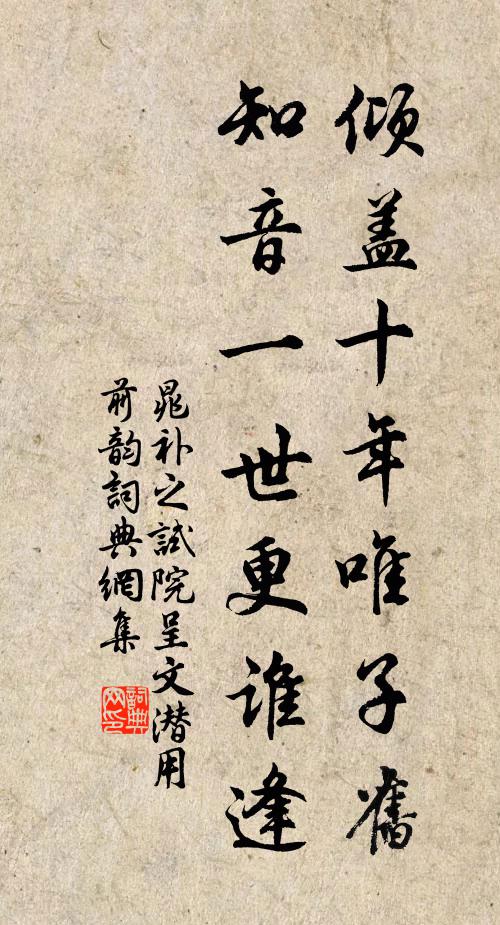 倾盖十年唯子舊
知音一世更谁逢
晁补之試院呈文潜用
前韵詞典網集
詞典
网印